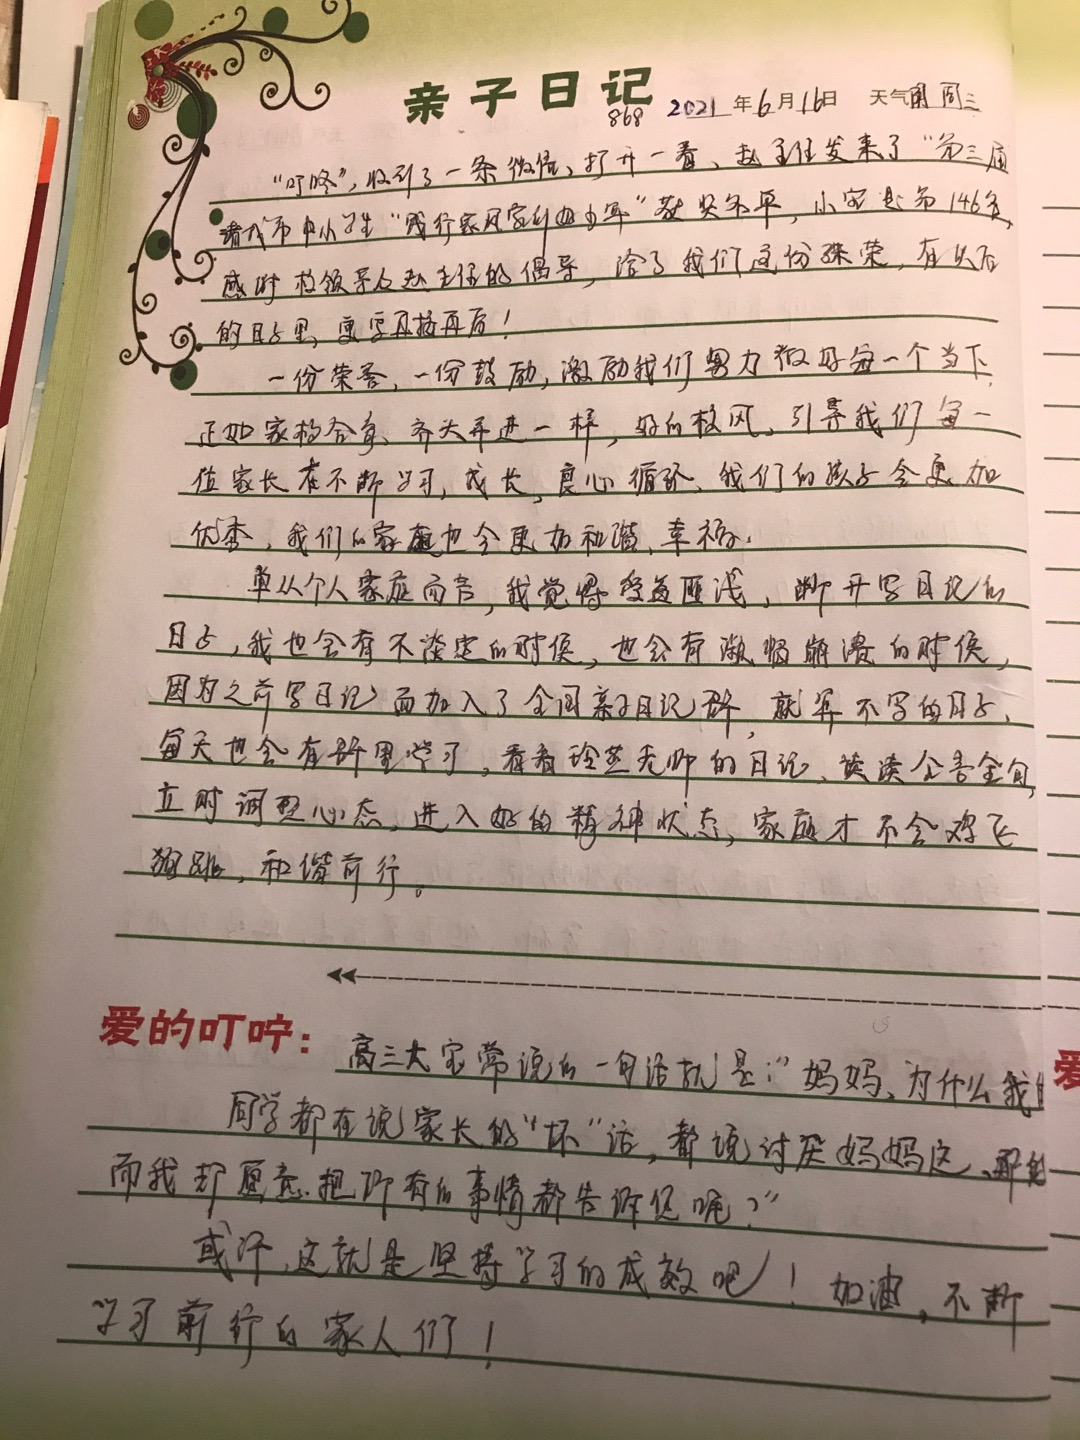 亲子日记
868
2021年6月16日 天气 周三
“叮咚”,收到了一条微信、打开一看、赵主任发来了“第三届
诸城市中小学生“践行家风家训 ”获奖名单,小宝是第146名,
感谢校领导及赵主任的倡导,给了我们这份殊荣,在以后
的日子里,要写再接再厉!
一份荣誉,一份鼓励,激励我们努力做好每一个当下,
正如家校合育、齐头并进一样,好的校风,引导我们每一
位家长在不断学习,成长,良心循环、我们的孩子会更加
优秀,我们的家庭也会更加和谐、幸福.
单从个人家庭而言,我觉得受益匪浅,断开写日记的
日子,我也会有不淡定的时侯,也会有激惱崩溃的时侯,
因为之前写日记而加入了全国亲子日记群,就算不写的日子、
每天也会在群里学习,看看 老师的日记、读读
立时调理心态,进入好的精神状态,家庭才不会鸡飞
狗跳,和谐前行。
爱的叮咛:
高三大宝常说的一句话就是:“妈妈、为什么我的
同学都在说家长的“坏”话,都说讨厌妈妈这、那的
而我却愿意把所有的事情都告诉您呢?”
或许,这就是坚持学习的成效吧!加油,不断
学习前行的家人们!